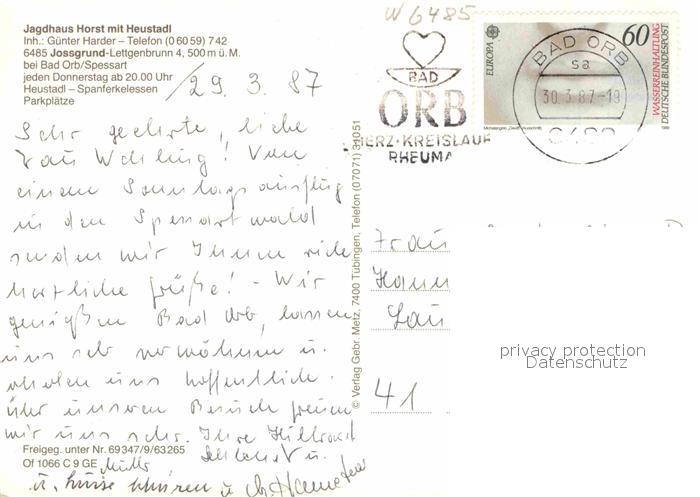 Jagdhaus Horst mit Heustadl
Inh.: Günter Harder – Telefon (06059) 742
6485 Jossgrund-Lettgenbrunn 4, 500 m ü. M.
bei Bad Orb/Spessart
jeden Donnerstag ab 20.00 Uhr
Heustadl – Spanferkelessen
Parkplätze
29. 3. 87
Sehr geehrte, liebe
Frau Wehling! Von
einem Sonntagsausflug
in den Spessartwald
senden wir Ihnen viele
herzliche Grüße! - Wir
genießen Bad Orb, lassen
uns sehr verwöhnen u.
erholen uns hoffentlich.
Über unseren Besuch freuen
wir uns sehr. Ihre
Freigeg. unter Nr. 69347/9/63265
Of 1066 C 9 GE
© Verlag Gebr. Metz, 7400 Tübingen, Telefon (07071) 31051
W 6485
BAD
ORB
HERZ·KREISLAUF
RHEUMA
EUROPA
60
WASSERREINHALTUNG
DEUTSCHE BUNDESPOST
BAD ORB
sa
30.3.87-19
Frau
Hann
Lau
41
privacy protection
Datenschutz